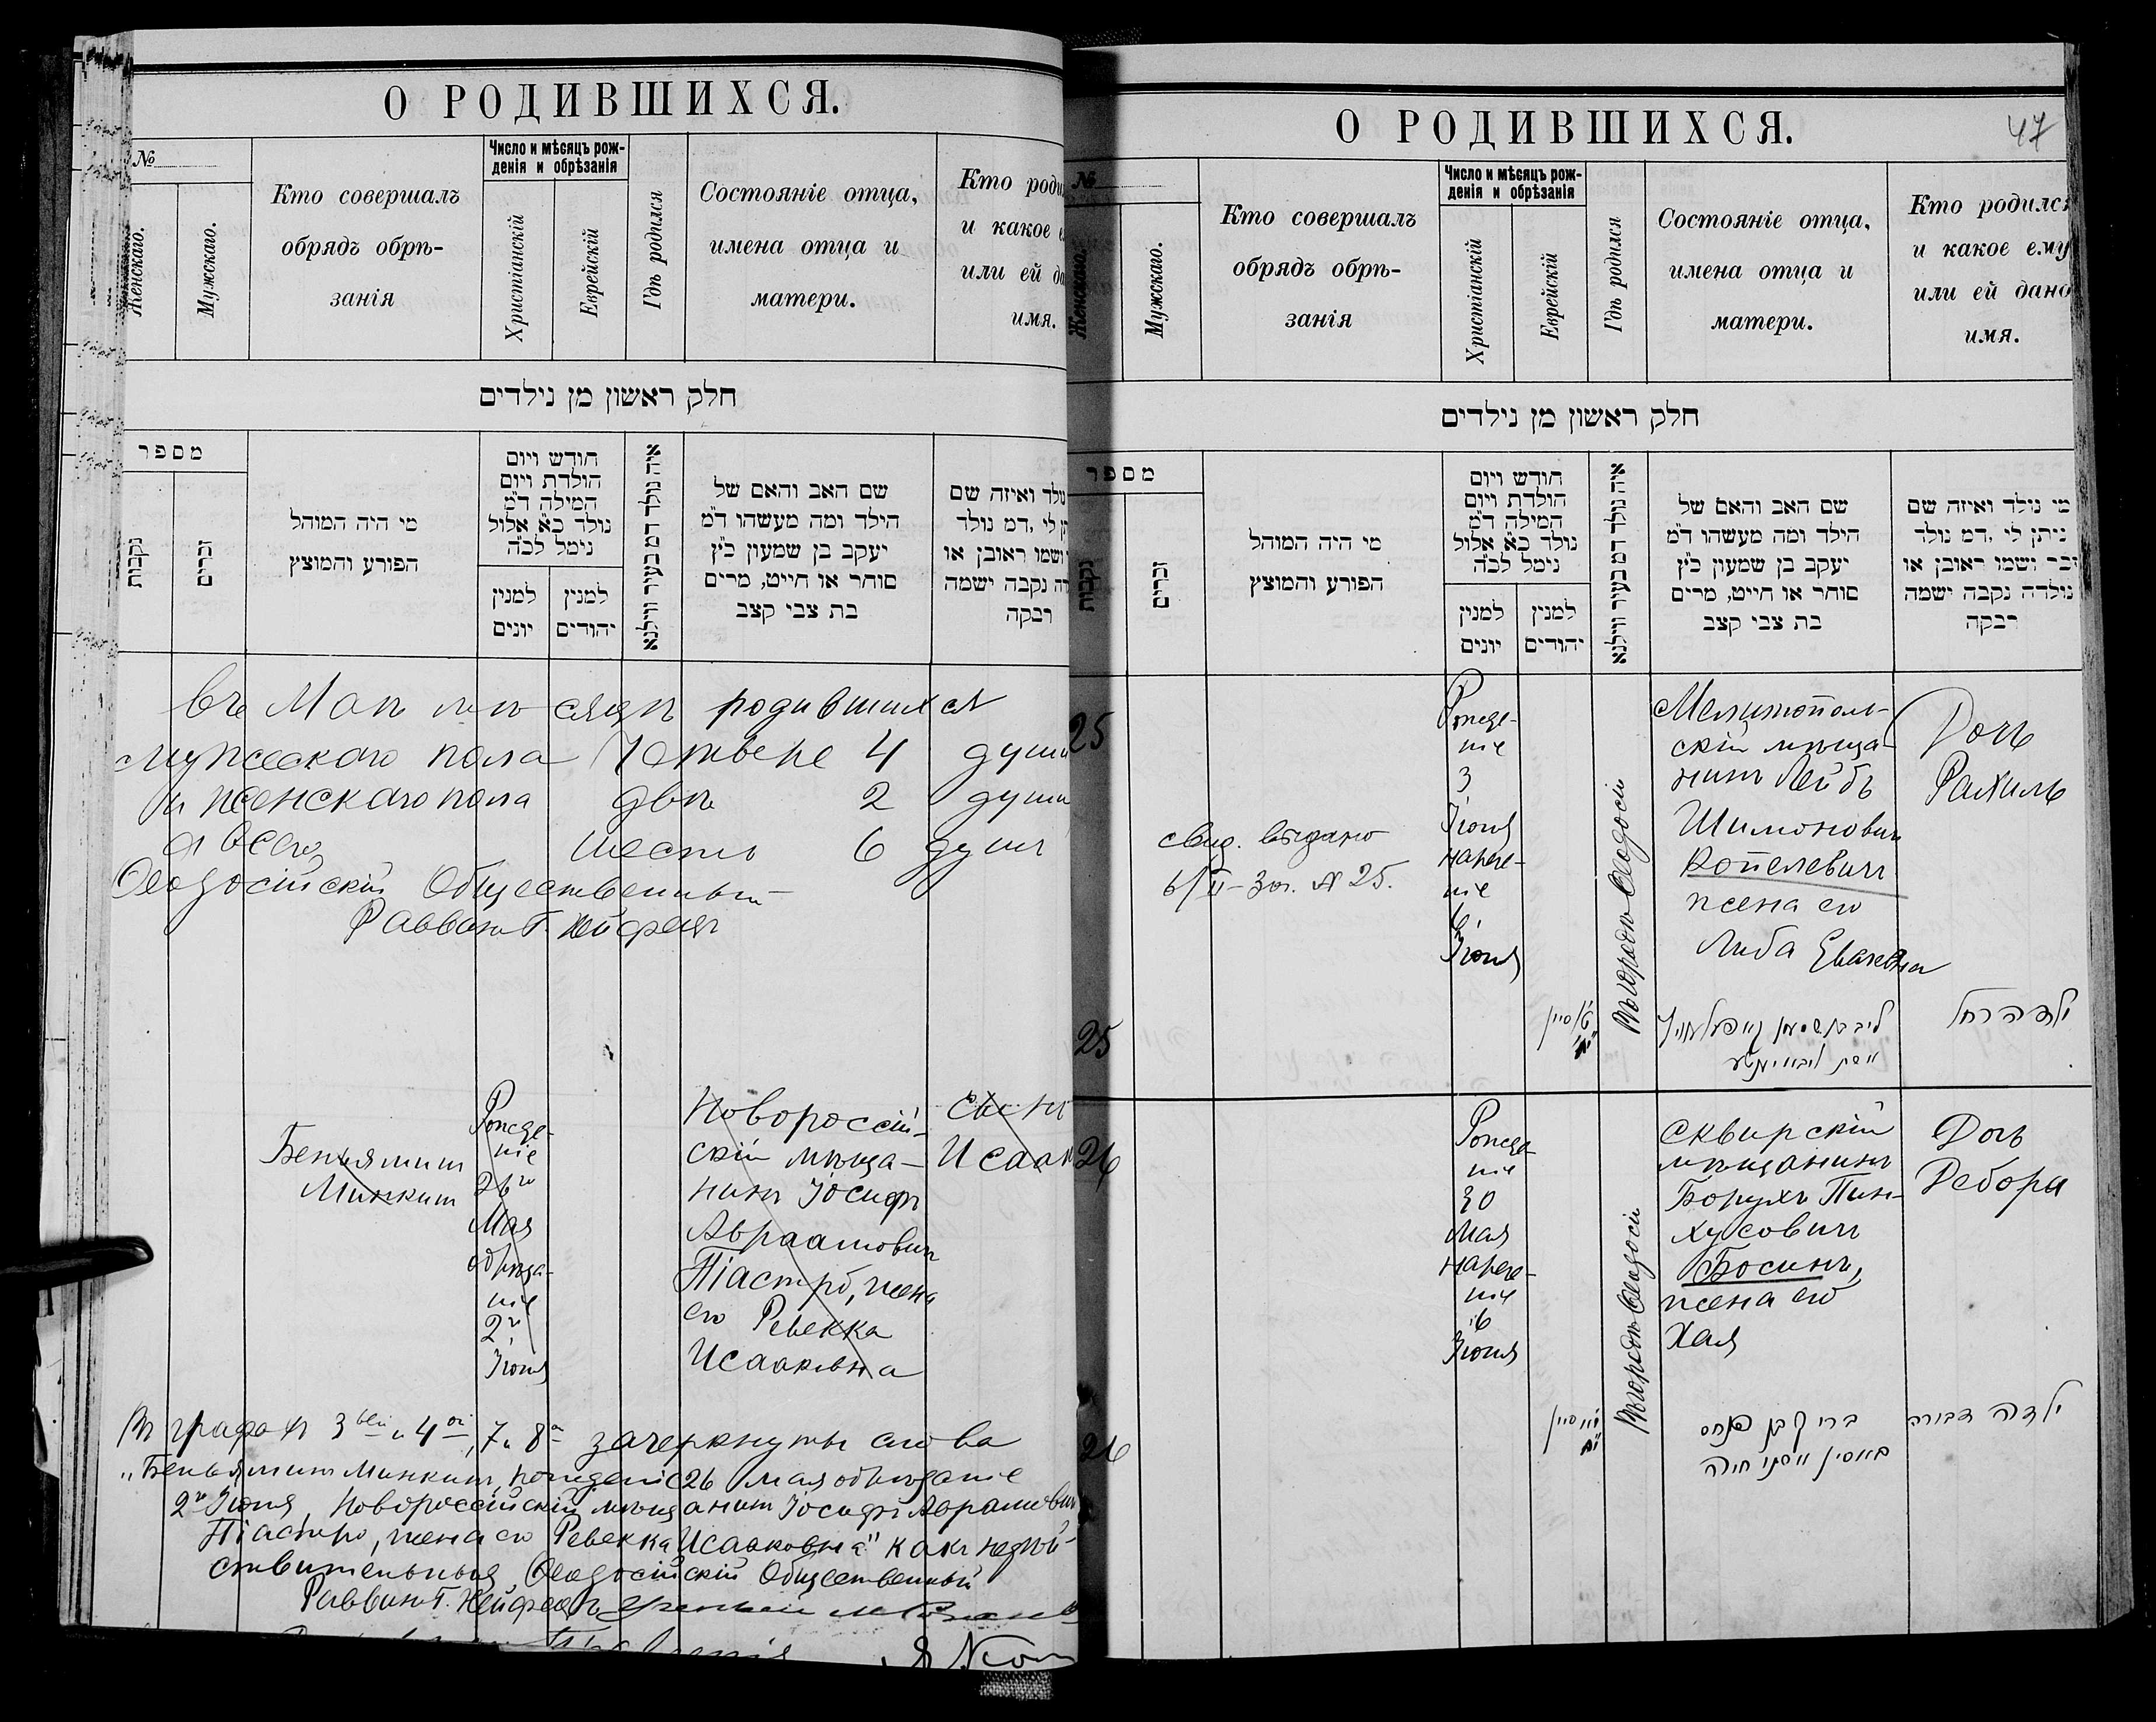 О РОДИВШИХСЯ.
№
Женскаго.
Мужскаго.
Кто совершалъ
обрядъ обрѣ-
занія
Число и мѣсяцъ рож-
денія и обрѣзанія
Христіанскій
Еврейскій
Гдѣ родился
Состояніе отца,
имена отца и
матери.
Кто роди
и какое е
или ей да
имя.
חלק ראשון מן נילדים
מספר
נקבות
זכרים
מי היה המוהל
הפורע והמוצץ
חודש ויום
הולדת ויום
המילה ד״מ
נולד כ״א אלול
נימל לכ״ה
למנין
יונים
למנין
יהודים
איה נולד דמ בעיר ווילנא
שם האב והאם של
הילד ומה מעשהו ד״מ
יעקב בן שמעון כ״ץ
סוחר או חייט, מרים
בת צבי קצב
ולד ואיזה שם
תן לי ,דמ נולד
ושמו ראובן או
דה נקבה ישמה
רבקה
Въ Маѣ мѣсяцѣ родившихся
мужескаго пола Четвере 4 души
и женскаго пола двѣ 2 души
а всего шесть 6 душъ
Ѳеодосійскій Общественный
Раввинъ Г. Нейфехъ
Беньяминъ
Минкинъ
Рожде-
ніе
26го
Мая
обрѣза-
ніе
2го
Іюня
Новороссій-
скій мѣща-
нинъ Іосифъ
Авраамовичъ
Піастро, жена
его Ревекка
Исааковна
Сынъ
Исаакъ
Въ графахъ 3ьей и 4ой, 7 и 8й зачеркнуты слова
„Беньяминъ Минкинъ, рожденіе 26 мая обрѣзаніе
2го Іюня, Новороссійскій мѣщанинъ Іосифъ Аврамовичъ
Піастро, жена его Ревекка Исааковна" какъ недѣй-
ствительныя Ѳеодосійскій Общественный
Раввинъ Г. Нейфехъ
О РОДИВШИХСЯ.
47
№
Женскаго.
Мужскаго.
Кто совершалъ
обрядъ обрѣ-
занія
Число и мѣсяцъ рож-
денія и обрѣзанія
Христіанскій
Еврейскій
Гдѣ родился
Состояніе отца,
имена отца и
матери.
Кто родился
и какое ему
или ей дано
имя.
חלק ראשון מן נילדים
מספר
נקבות
זכרים
מי היה המוהל
הפורע והמוצץ
חודש ויום
הולדת ויום
המילה ד״מ
נולד כ״א אלול
נימל לכ״ה
למנין
יונים
למנין
יהודים
איה נולד דמ בעיר ווילנא
שם האב והאם של
הילד ומה מעשהו ד״מ
יעקב בן שמעון כ״ץ
סוחר או חייט, מרים
בת צבי קצב
מי נולד ואיזה שם
ניתן לי ,דמ נולד
זכר ושמו ראובן או
נולדה נקבה ישמה
רבקה
25
свид. выдано
6/II-30г. № 25.
Рожде-
ніе
3
Іюня
нарече-
ніе
6
Іюня
סיון
Въ городѣ Ѳеодосіи
Мелитополь-
скій мѣща-
нинъ Лейбъ
Шимоновичъ
Копелевичъ
жена его
Либа
Дочь
Рахиль
ילדה רחל
25
26
Рожде-
ніе
30
Мая
нарече-
ніе
6
Іюня
סיון
Въ городѣ Ѳеодосіи
Сквирскій
мѣщанинъ
Борухъ Пин-
хусовичъ
Босинъ,
жена его
Хая
ברוך בן פנחס
באסין אשתו חיה
Дочь
Дебора
ילדה דבורה
26